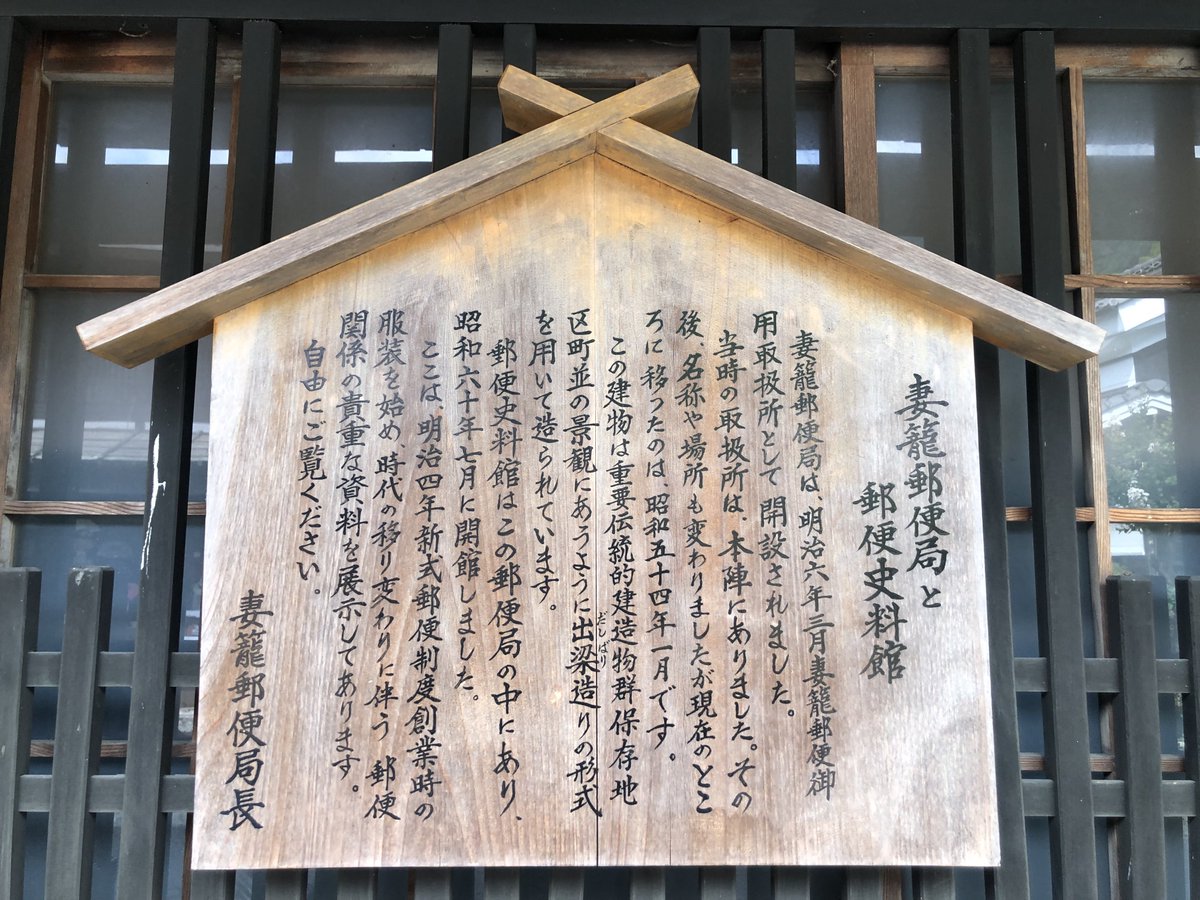 妻籠郵便局と
郵便史料館
妻籠郵便局は、明治六年三月妻籠郵便御
用取扱所として開設されました。
当時の取扱所は、本陣にありました。その
後、名称や場所も変わりましたが現在のとこ
ろに移ったのは、昭和五十四年一月です。
この建物は重要伝統的建造物群保存地
区町並の景観にあうように出梁造りの形式
だしばり
を用いて造られています。
郵便史料館はこの郵便局の中にあり、
昭和六十年七月に開館しました。
ここは、明治四年新式郵便制度創業時の
服装を始め、時代の移り変わりに伴う郵便
関係の貴重な資料を展示してあります。
自由にご覧ください。
妻籠郵便局長